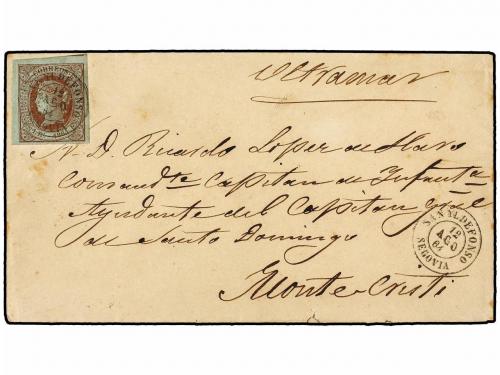 Ultramar
CORREOS
S. D. Ricardo Lopez de Haro
Comand.te Capitan de Infant.a
Ayudante del Capitan Gral
de Santo Domingo
Monte-Cristi
SAN YLDEFONSO
12
AGO
64
SEGOVIA